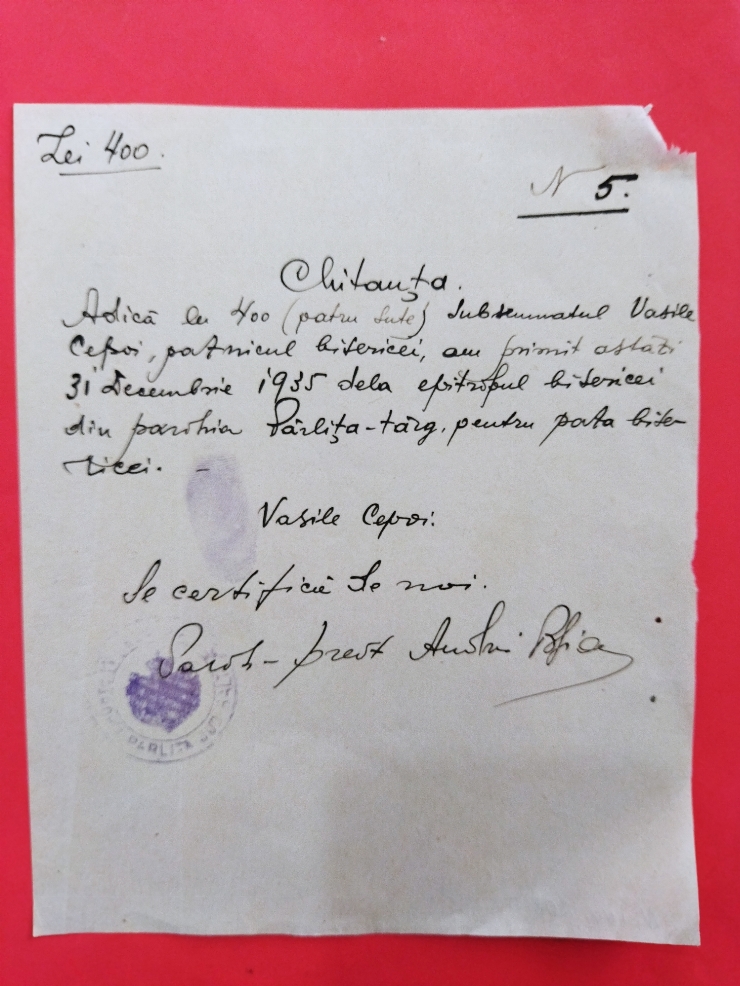 Lei 400.
N 5.
Chitanţa.
Adică lei 400 (patru sute) Subsemnatul Vasile
Cepoi, paznicul bisericei, am primit astăzi
31 Decembrie 1935 dela epitropul bisericei
din parohia Pârliţa-târg, pentru paza bise-
ricei. -
Vasile Cepoi.
Se certifică de noi.
Paroh - preot Andrei
PARLITA